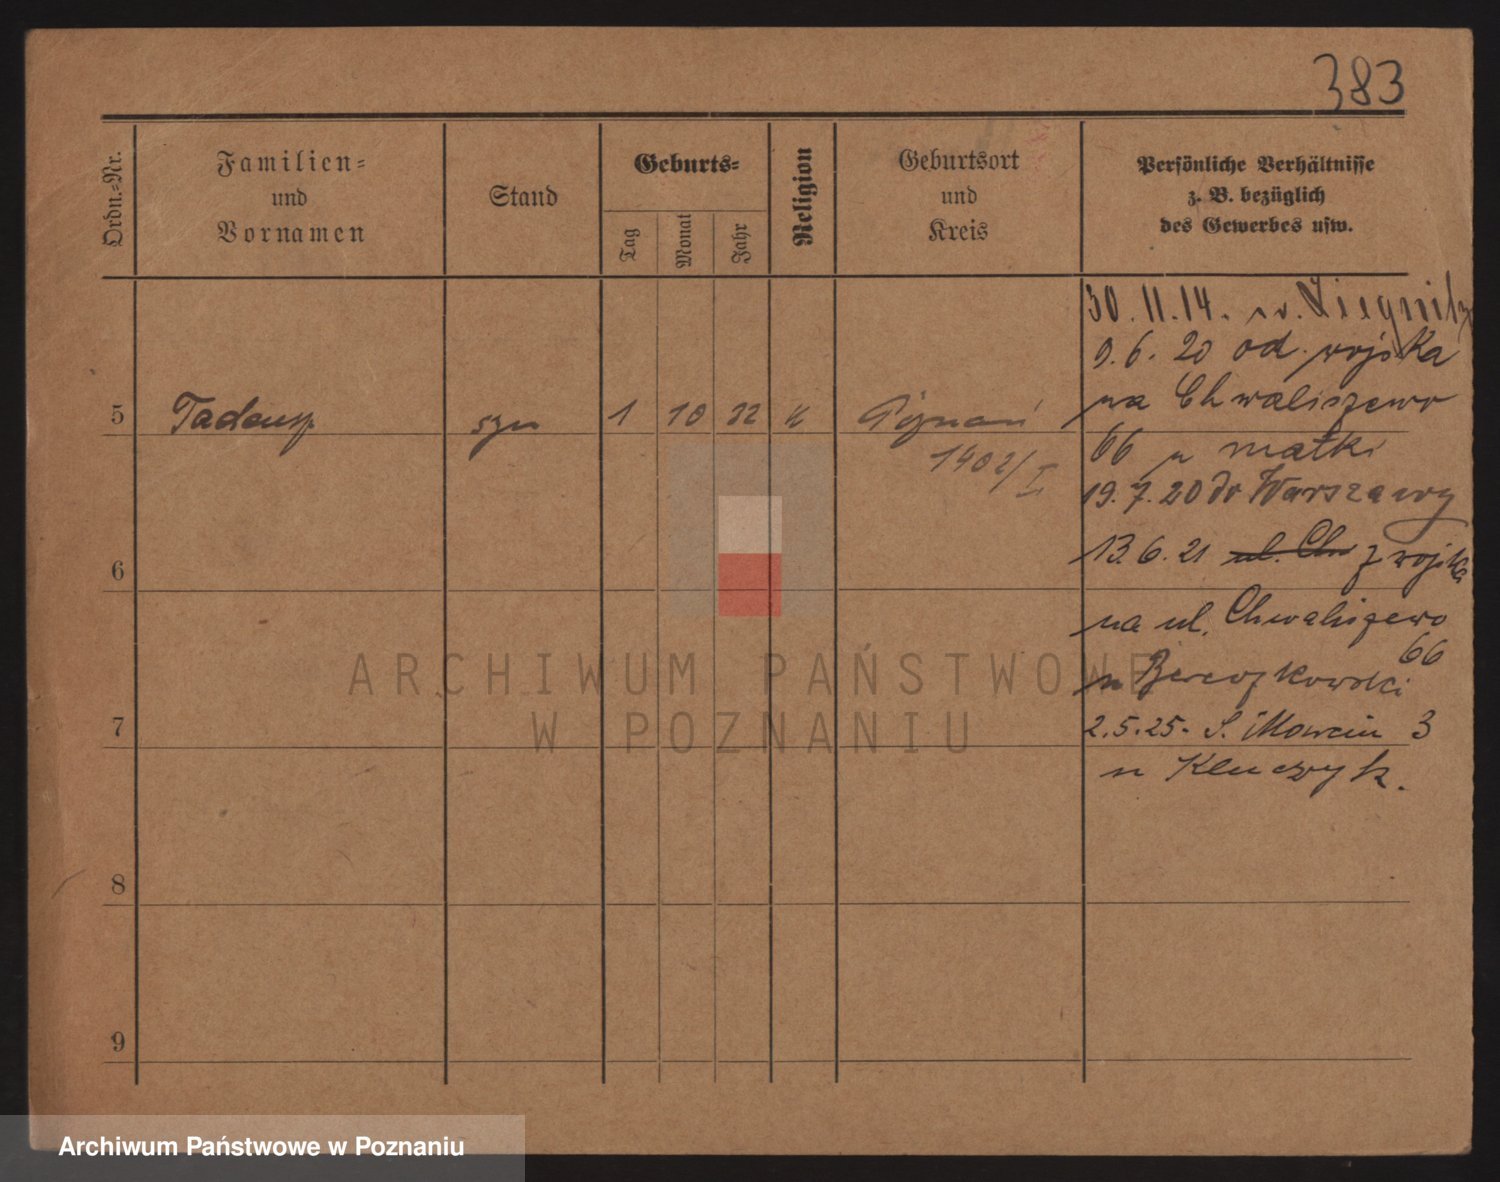 383
Ordn.=Nr.
Familien=
und
Vornamen
Stand
Geburts=
Tag
Monat
Jahr
Religion
Geburtsort
und
Kreis
Persönliche Verhältnisse
z. B. bezüglich
des Gewerbes usw.
30.11.14. v. Liegnitz
9.6.20 od wojska
na Chwaliszewo
5 Tadeusz syn 1 10 22 k Poznań
66 u matki
1402/I
19.7.20 do Warszawy
13.6.21 ul. Chw z wojska
6
na ul. Chwaliszewo
66
u
2.5.25. S. Marcin 3
7
u Kluczyk.
8
9
ARCHIWUM PAŃSTWOWE
W POZNANIU
Archiwum Państwowe w Poznaniu